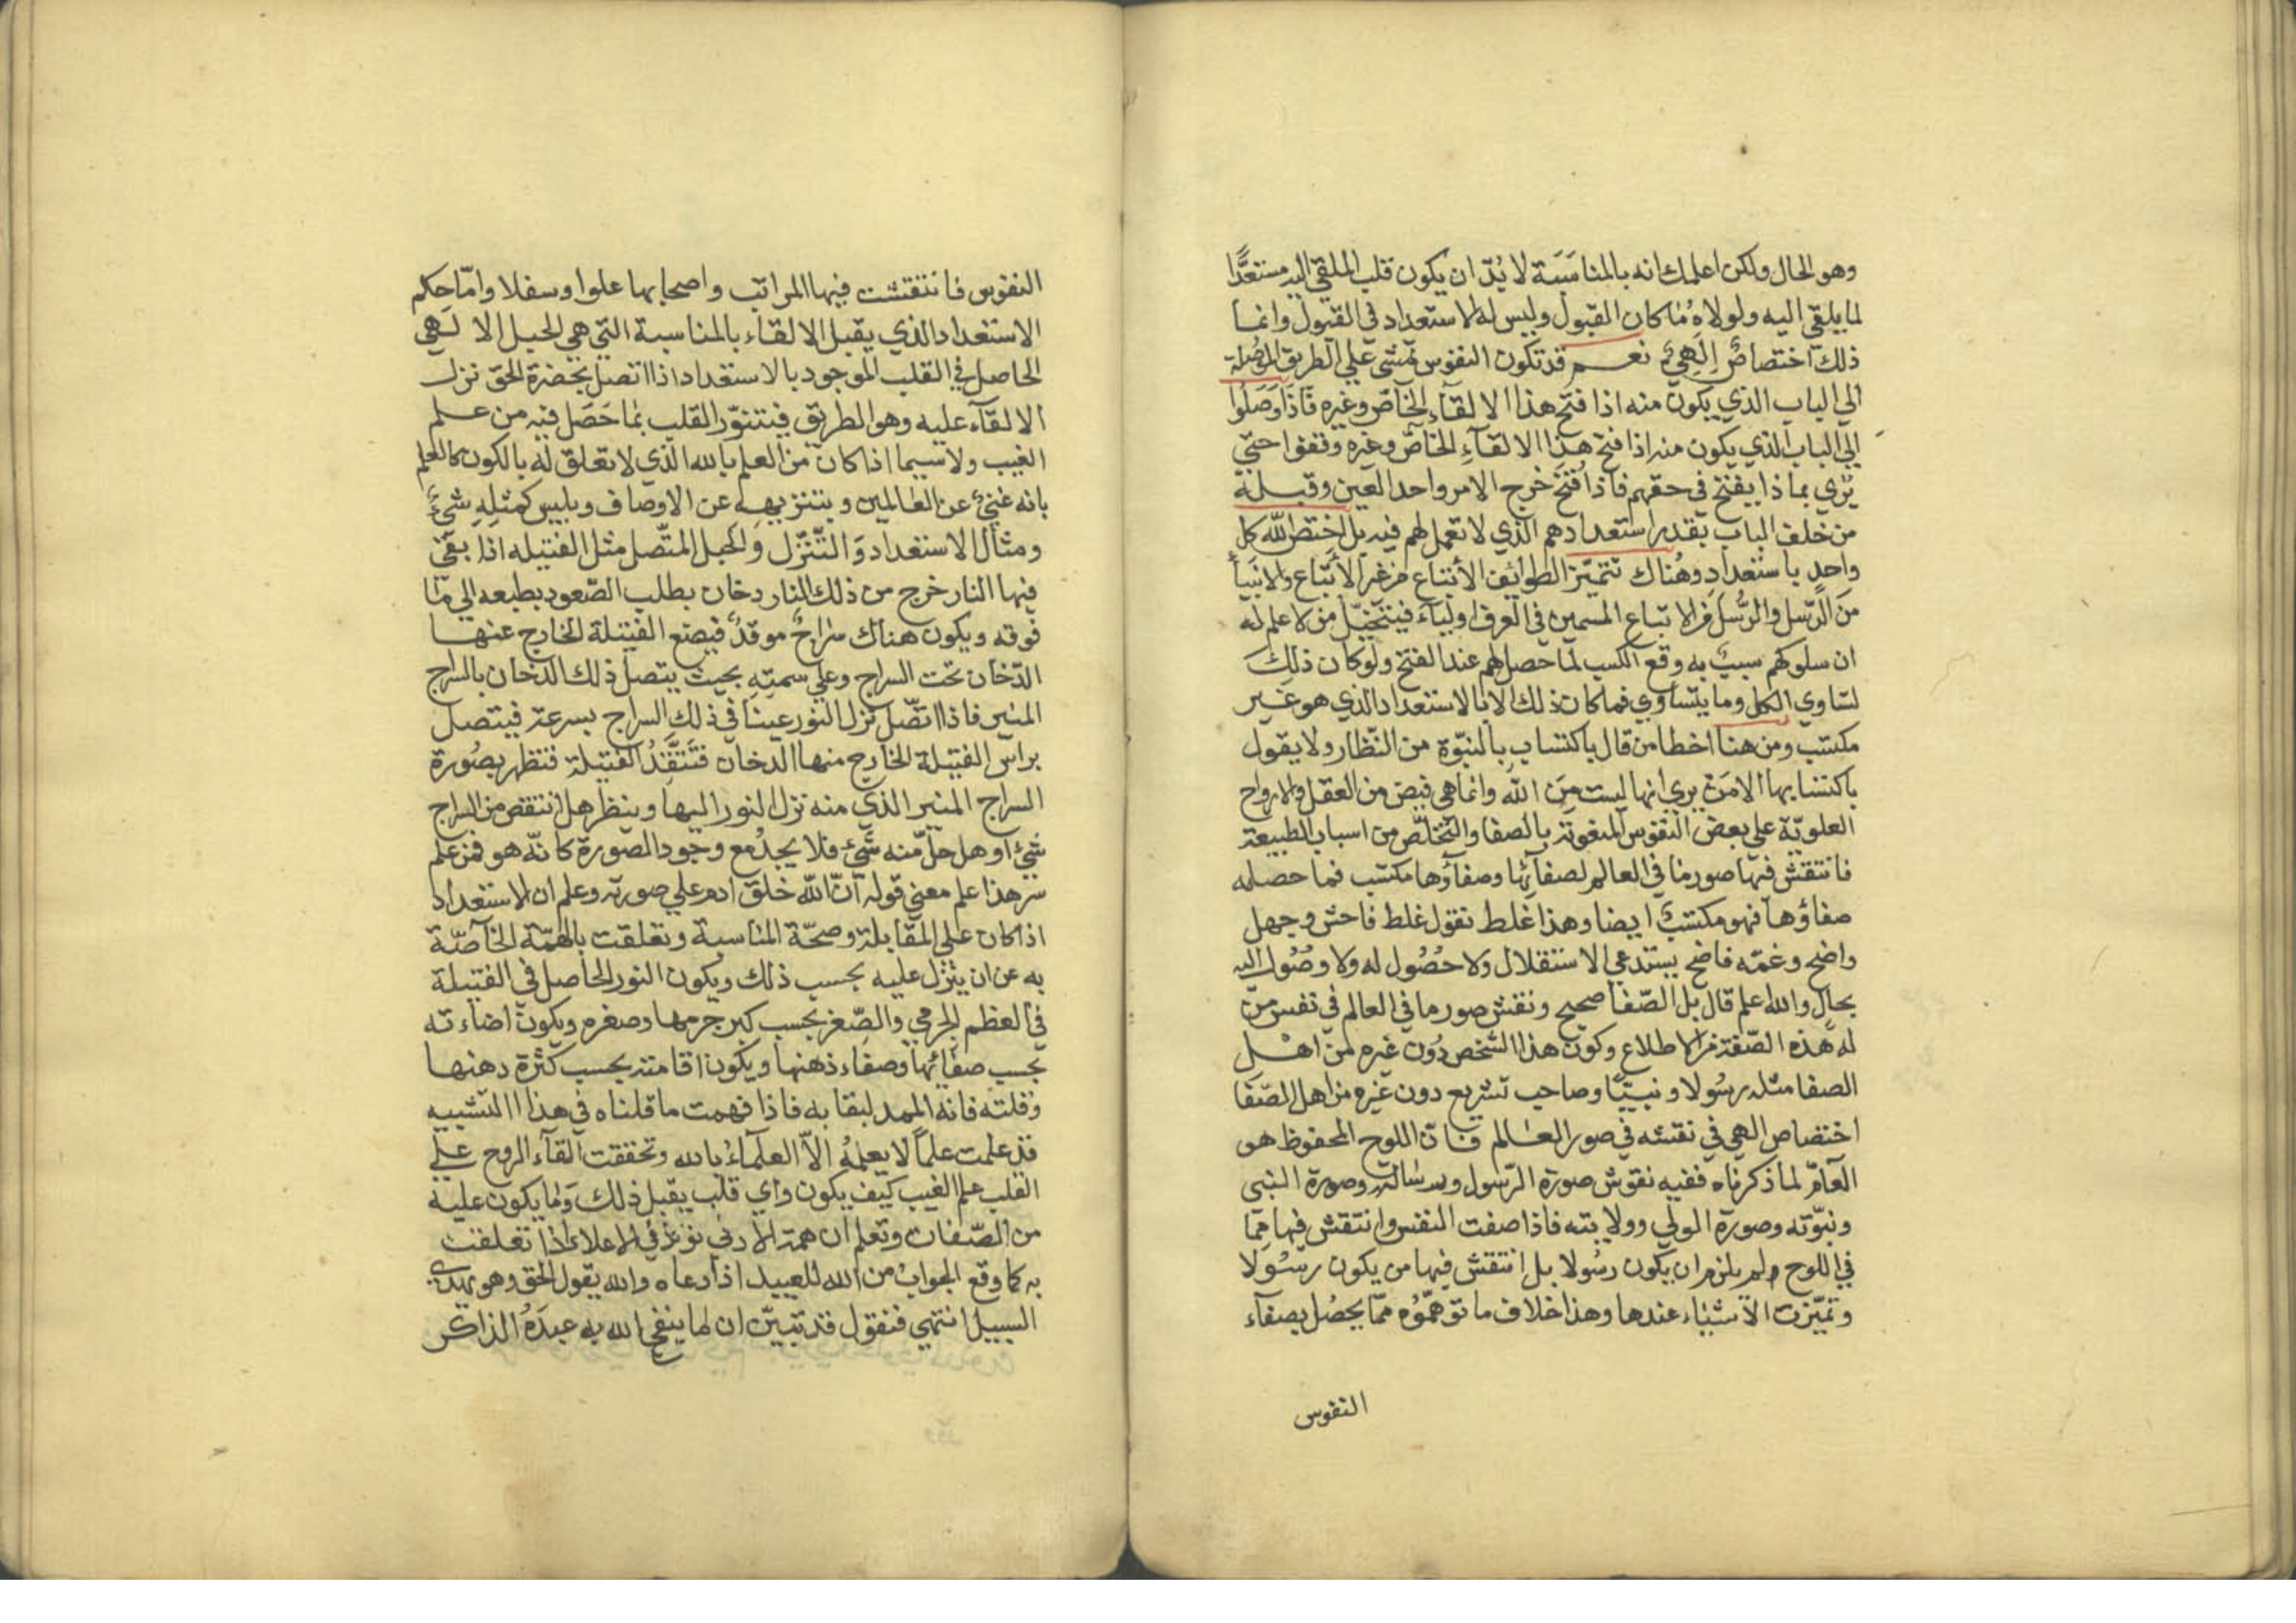 وهو الحال ولكن اعلمك انه بالمناسَبَة لا بُدّ ان يكون قلب الملقي اليه مستعدًّا
لما يلقي اليه ولولاه مُا كان القبول وليس له الاستعداد في القبول وانما
ذلك اختصاصٌ اِلَهِيٌ نعــم قد تكون النفوس تمشي علي الطريق الموصُلة
الي الباب الذي يكون منه اذا فتح هذا الالقاَء الخاصّ وغيره فَاذَا وَصَلُوا
الي الباب الذي يكون منه اذا فتح هذا الالقاَءِ الخاصّ وغيره وقفوا حتي
يَرَي بماذا يفتح في حقهم فاذا فُتحَ خرج الامر واحد العين وقبــله
من خلف الباب بقدر استعدادهم الذي لا تعمل لهم فيه بل اختص اللّه كل
واحدٍ باستعدادٍ وهُناك تتميّز الطوايف الأتباع من غير الأتباع والانبياَء
مَن الرّسل والرّسُل من الاتباع المسمين في العرف اولياَء فيتخيّل من لا علم له
ان سلوكهم سببٌ به وقع الكسب لما حصل لهم عند الفتح ولو كان ذلك
لتساوي الكل وما يتساوي فما كان ذلك الا بالاستعداد الذي هو غــير
مكتسب ومن هنا اخطا من قال باكتساب بالنبوّة من النّظار ولا يقول
باكتسابها الا مَن يري انها ليست مِن الله وانما هي فيض من العقل والارواح
العلويّة علي بعض النفوس المنعوتة بالصفا والتّخلّص من اسباب الطبيعة
فانتقش فيها صور ما في العالم لصفاَئِها وصفاؤُها مكتسب فما حصله
صفاؤها فهو مكتسبٌ ايضا وهذا غلط نقول غلط فاحش وجهل
واضح وغمّه فاضح يستدعي الاستقلال ولا حُصُول له ولا وصُول اليه
بحال والله علم قال بل الصّفا صحيح ونقش صور ما في العالم في نفس منّ
له هَذه الصّفة من الاطلاع وكون هذا الشخص دُون غيره من اهــل
الصفا مثله رسُولا ونبيًّا وصاحب تشريع دون غيره من اهل الصّفَا
اختصاص الهي في نقشه في صور العــالم فان اللوح المحفوظ هو
العاَمّ لما ذكرناه ففيه نقوش صورة الرّسول ورسالته وصورة النبي
ونبوّته وصورة الولي وولايته فاذا صفت النفس وانتقش فيها مِمّا
في اللوح ولم يلزم ان يكون رسُولا بل انتقش فيها من يكون رسُولا
وتميّزت الاشيَاء عندها وهذا خلاف ما توهّمّوُه ممّا يحصُل بصفاَء
النفوس
النفوس فانتقشت فيها المراتب واصحابها علوا وسفلا وامّا حِكم
الاستعداد الذي يقبل الالقاء بالمناسبة التي هي الحبل الالَهي
الحاصل في القلب الموجود بالاستعداد اذا اتصل بحضرة الحق نزل
الالقاَء عليه وهو الطريق فيتنوّر القلب بما حَصَل فيه من علــم
الغيب ولا سيما اذا كان من العلم بالله الذّي لا تعلق له بالكون كالعلم
بانه غَنِيٌ عن العالمين وبتنزيهــه عن الاوصاف وبليس كمثلِهِ شيٌء
ومثال الاستعداد وَالتّنَزّل وَالحبل المتّصل مثل الفتيله اذا بقي
فيها النار خرج من ذلك النار دخان بطلب الصّعود بطبعه الي مَا
فوقه ويكون هناك سراجٌ موقدٌ فيصنع الفتيلة الخارج عنهــا
الدّخان تحت السراج وعلي سمتِهِ بحيث يتصل ذلك الدّخان بالسراج
المنير فاذا اتصّل نزل النور عيناً في ذلك السراج بسرعة فيتصل
براس الفتيلة الخارج منها الدخان فتَتّقِدُ الفتيلة فتظهر بصُورة
السراج المنير الذي منه نزل النور اليها وينظر هل انتقص من السراج
شيئٌ او هل حلّ منه شَيٌء فلا يجدُ مع وجود الصورة كانّه هو فمن علم
سر هذا علم معني قوله انّ اللّه خلق ادم علي صورته وعلم ان الاستعداد
اذا كان علي المقَابلة وصحّة المناسبة وتعلقت بالهمّة الخاَصّة
به عن ان يتنزّل عليه بحسب ذلك ويكون النور الحاصل في الفتيلة
في العظم الجرمي والصّغر بحسب كبر جرمها وصغره ويكون اضاءته
بحسب صفائها وصفاء دهنها ويكون اقامته بحسب كثرة دهنهــا
وقلته فانه الممد لبقابه فاذا فهمت ما قلناه في هذا التشبيه
قد علمت علمًا لا يعلمُه الاّ العلماَءُ بالله وتحققت القاَء الروح علي
القلب علم الغيب كيف يكون واي قلب يقبل ذلك وَما يكون عليه
من الصّفات وتعلم ان همة الادني تؤثر في الاعلاء اذا تعلقت
به كما وقع الجوابُ من اللّه للعبيد اذا دعاه والله يقول الحق وهو يهدي
السبيل انتهي فنقول قد تبيّن ان لها ينفخ الله به عبدَهُ الذاكر